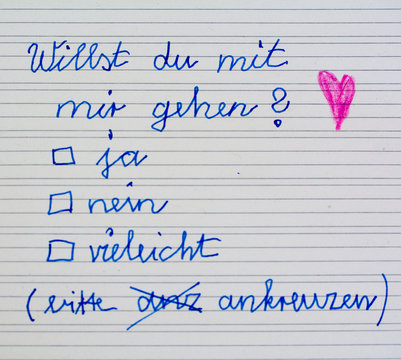 Willst du mit
mir gehen?
ja
nein
vieleicht
(bitte anz ankreuzen)